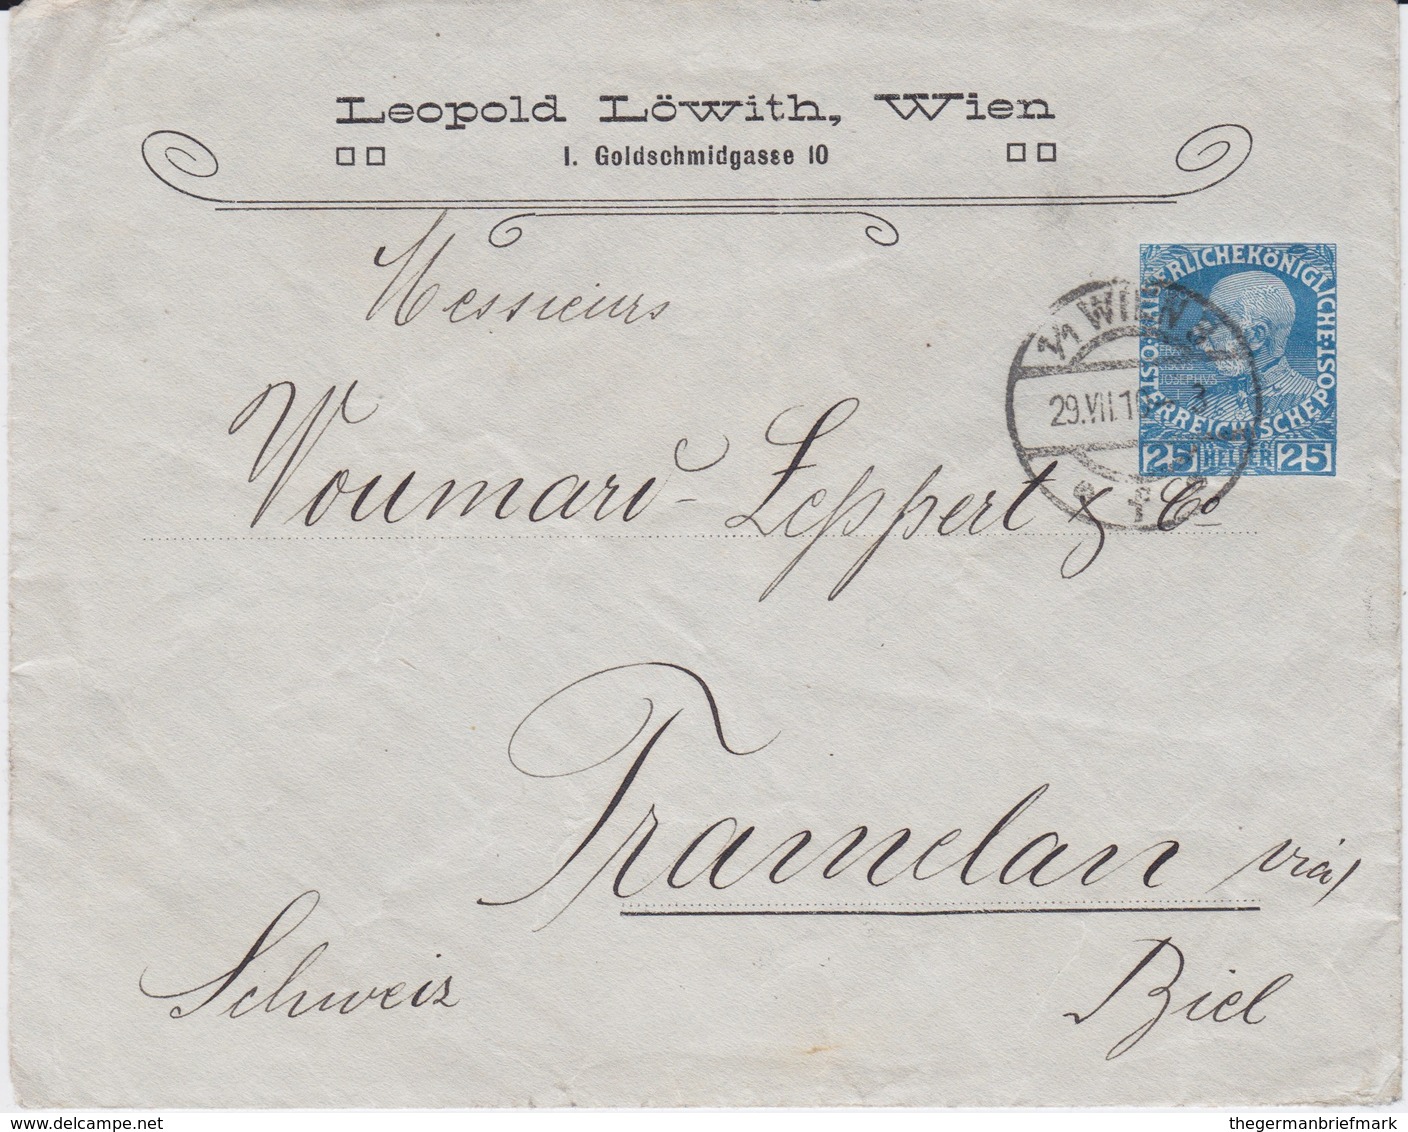 Leopold Löwith, Wien
I. Goldschmidgasse 10
Messieurs
ÖSTERREICHISCHE POST
KAISERLICHEKÖNIGLICHE
25 HELLER 25
WIEN
29.VII.10
Voumard-Leppert & Co
Tramelan via
Schweiz
Biel
www.delcampe.net
thegermanbriefmark